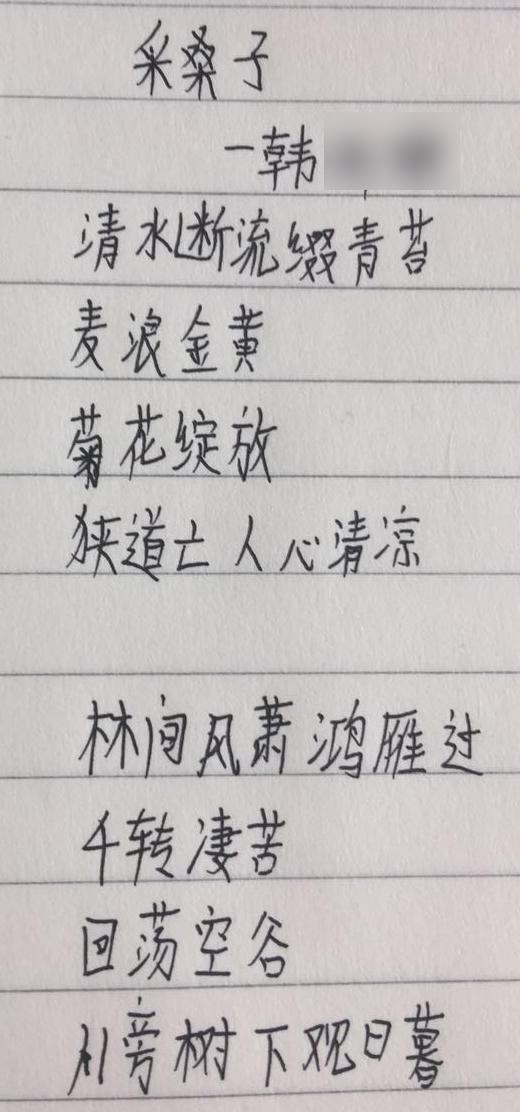 采桑子
一韩
清水断流缀青苔
麦浪金黄
菊花绽放
狭道亡人心清凉
林间风萧鸿雁过
千转凄苦
回荡空谷
川旁树下观日暮